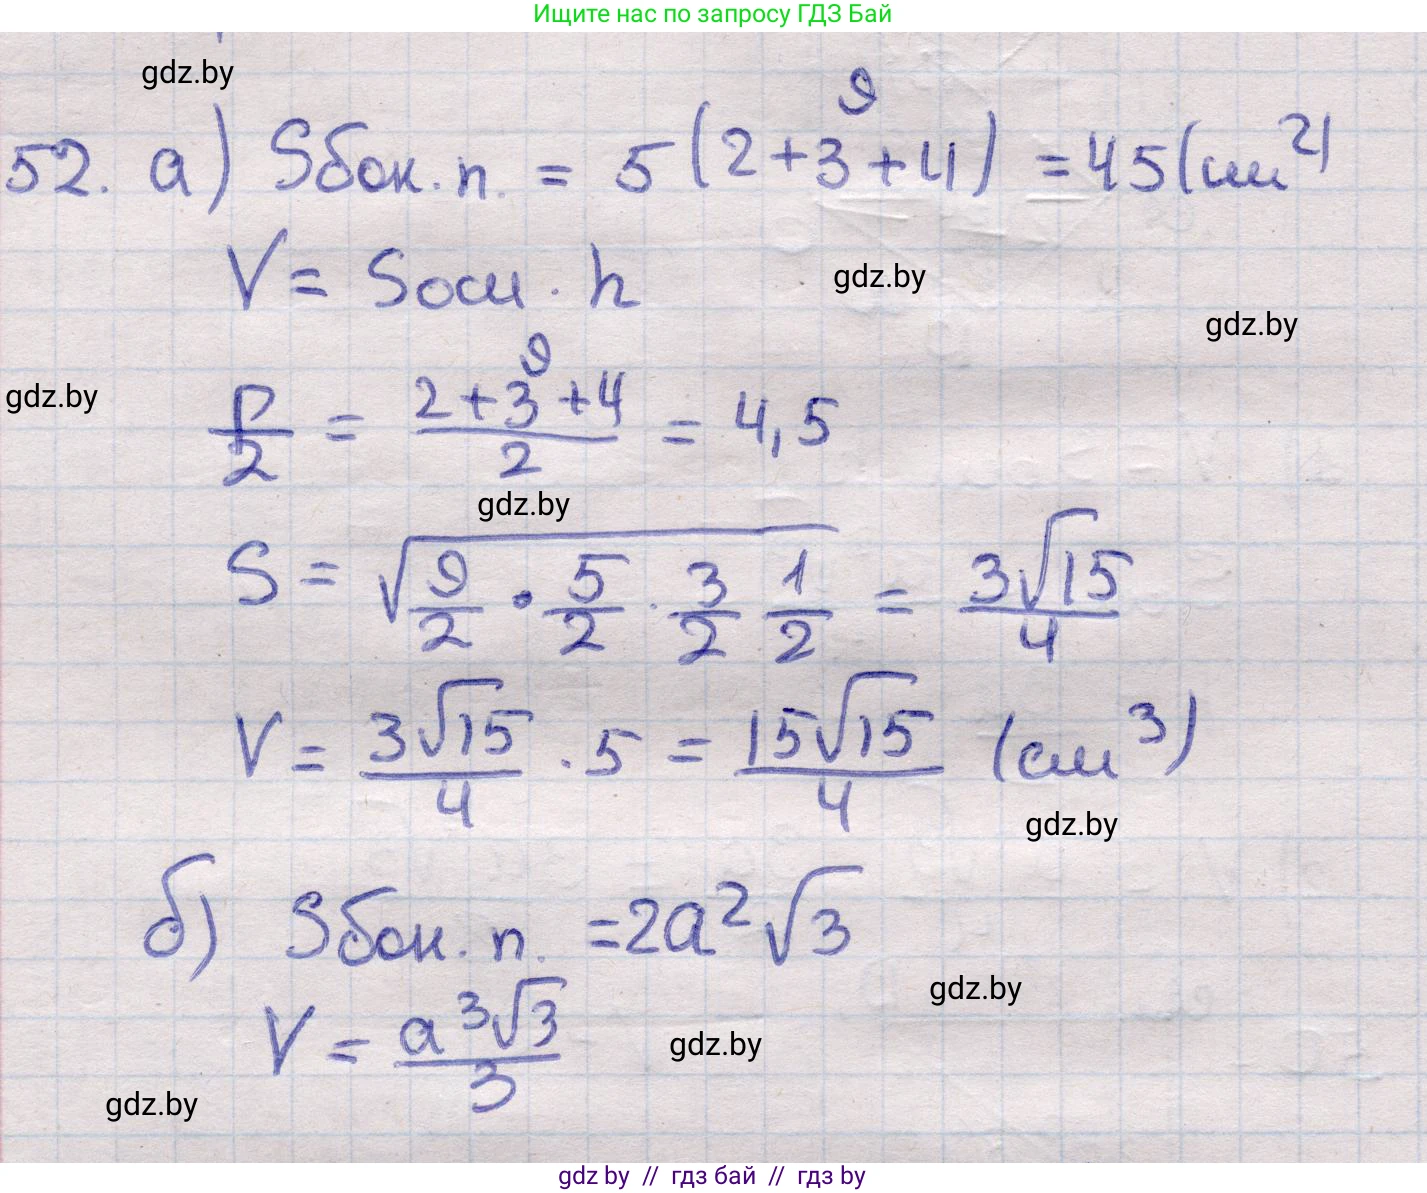 Ищите нас по запросу ГДЗ Бай
gdz.by
9
52. а) Sбок. п. = 5(2+3+4) = 45(см²)
V = Sосн · h
gdz.by
gdz.by
gdz.by
9
P/2 = (2+3+4)/2 = 4,5
gdz.by
S = √(9/2 · 5/2 · 3/2 1/2) = 3√15/4
V = 3√15/4 · 5 = 15√15/4 (см³)
gdz.by
б) Sбок. п. = 2a²√3
gdz.by
V = a³√3/3
gdz.by
gdz.by
gdz by // гдз бай // гдз by